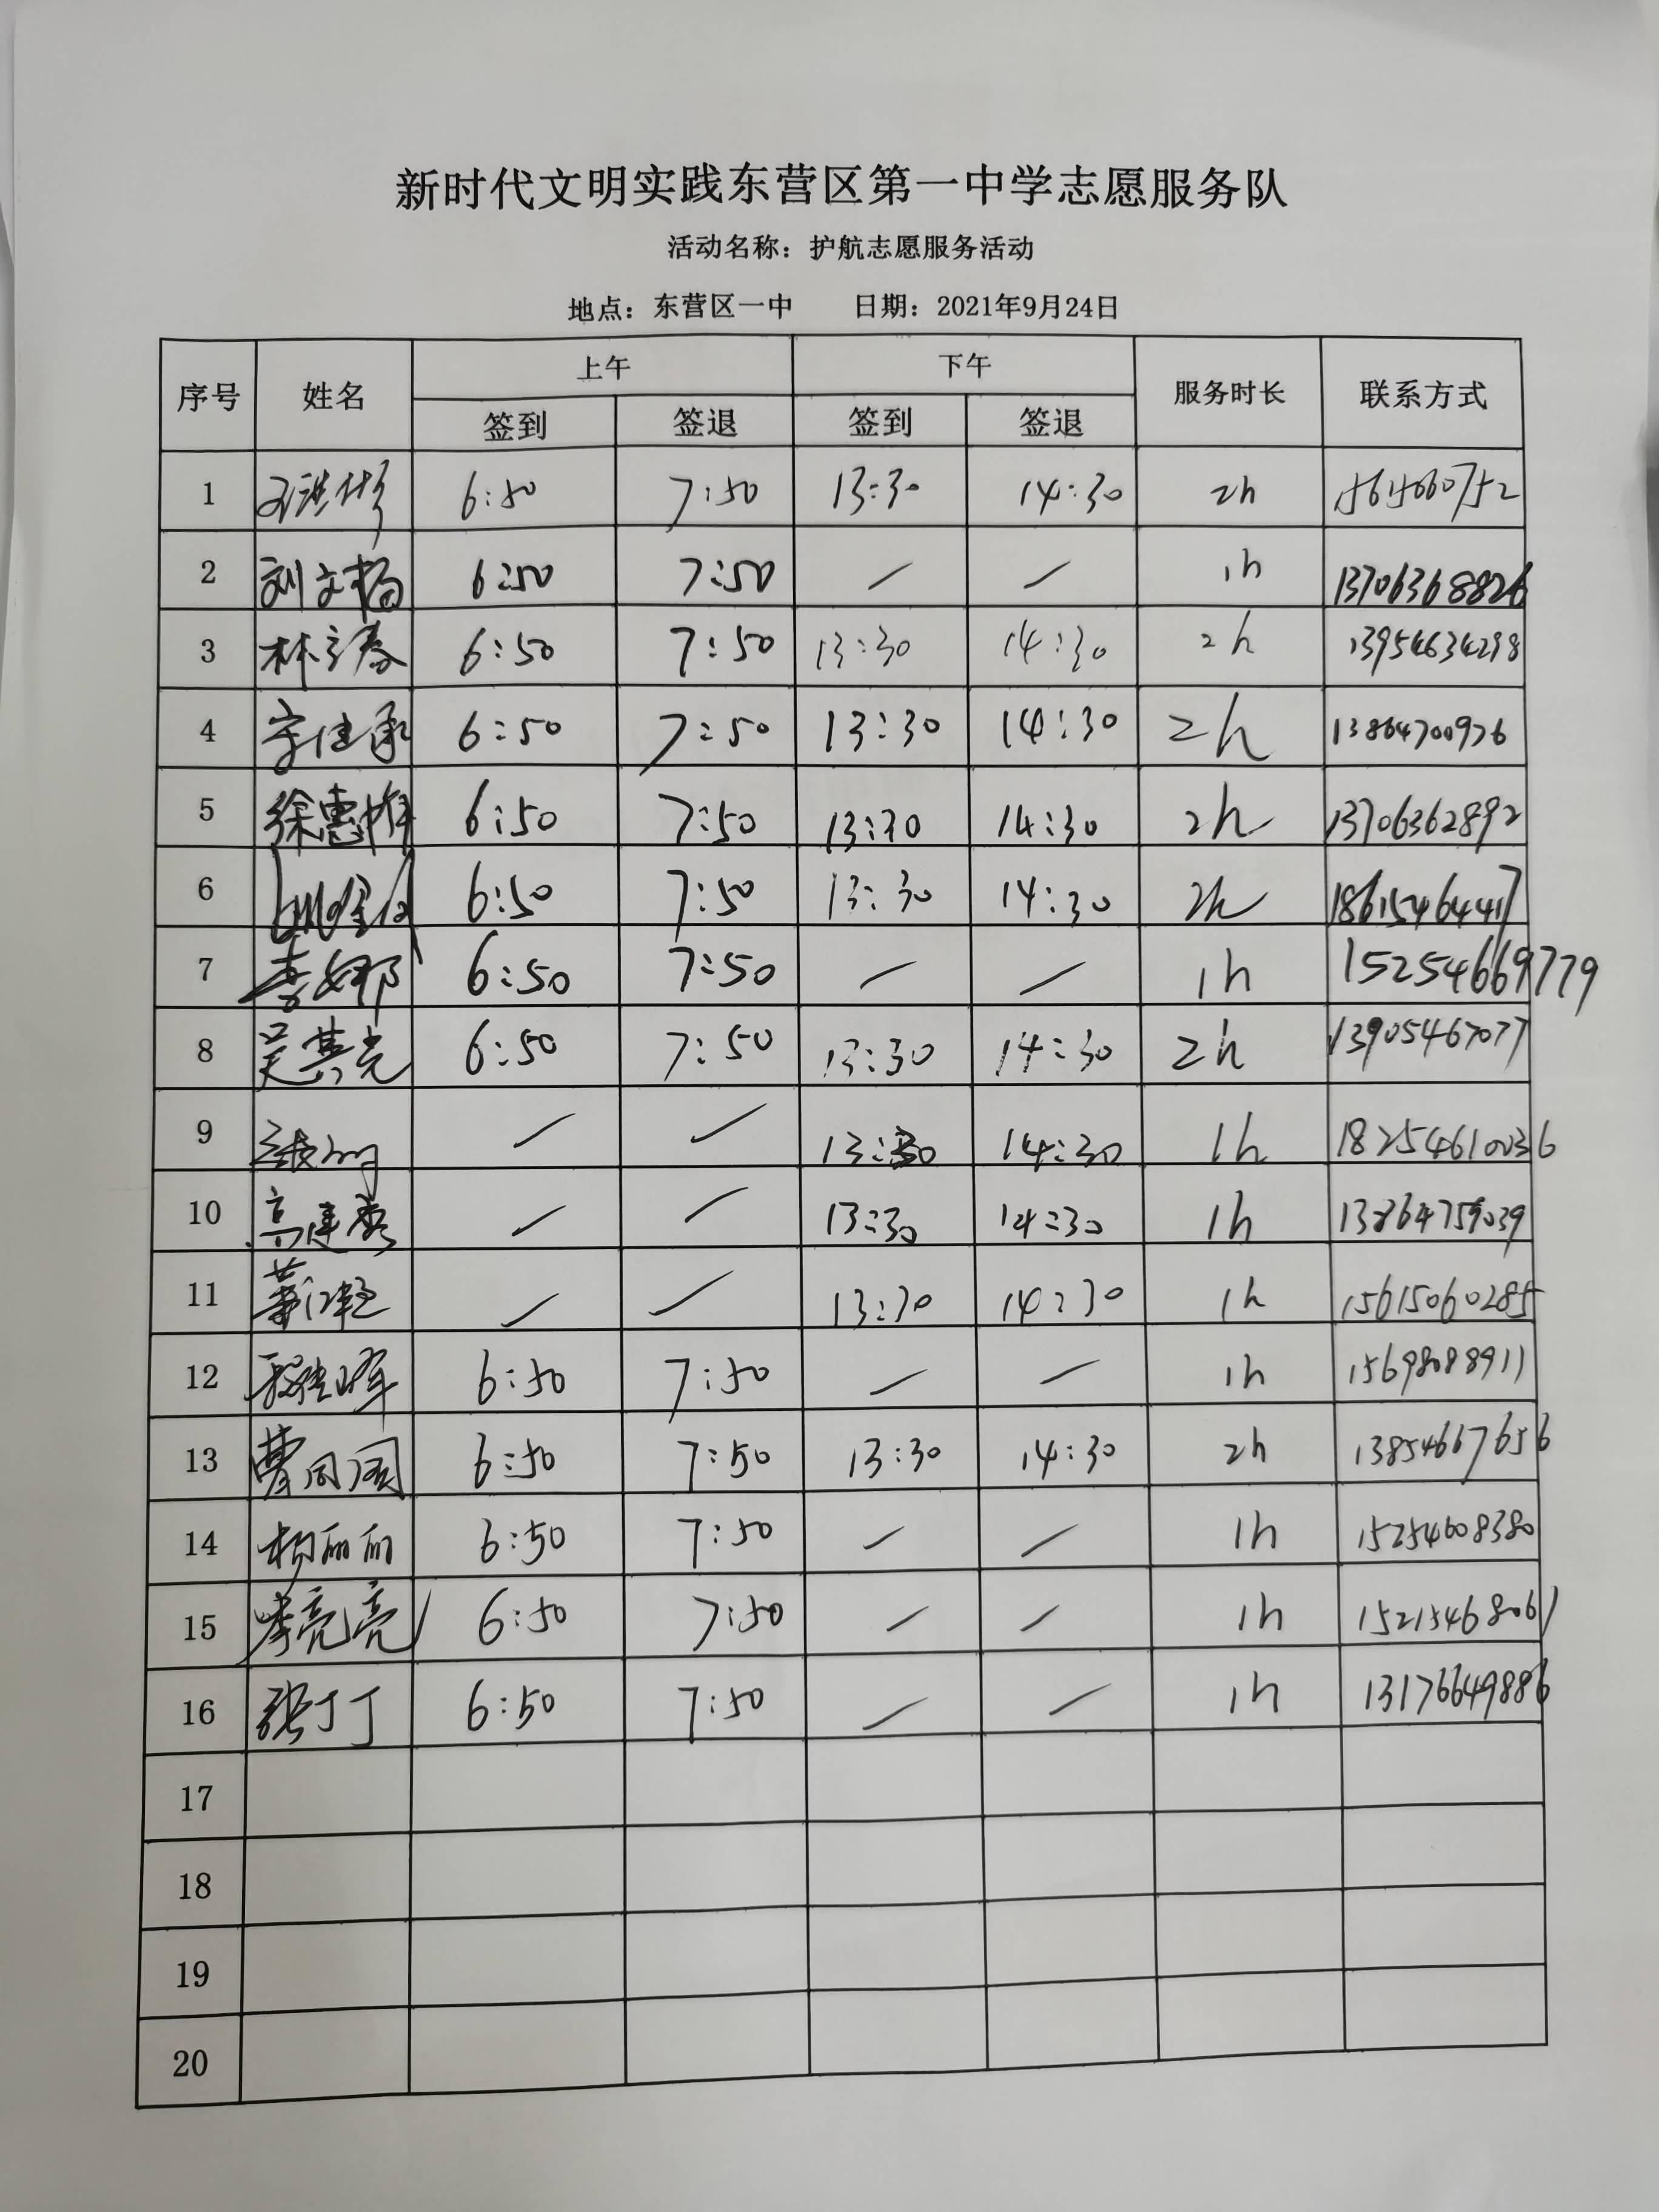 新时代文明实践东营区第一中学志愿服务队
活动名称：护航志愿服务活动
地点：东营区一中 日期：2021年9月24日
序号 姓名 上午 下午 服务时长 联系方式
签到 签退 签到 签退
1 6:50 7:50 13:30 14:30 2h
2 刘文杨 6:50 7:50 / / 1h 13706368826
3 林立春 6:50 7:50 13:30 14:30 2h 13954634298
4 6:50 7:50 13:30 14:30 2h 13864700976
5 6:50 7:50 13:30 14:30 2h 13706362892
6 6:50 7:50 13:30 14:30 2h 18615464417
7 李娜 6:50 7:50 / / 1h 15254669779
8 吴其光 6:50 7:50 13:30 14:30 2h 13905467077
9 / / 13:30 14:30 1h 18254610036
10 高建秀 / / 13:30 14:30 1h 13864759039
11 / / 13:30 14:30 1h 15615060285
12 6:50 7:50 / / 1h 15698088911
13 曹同国 6:50 7:50 13:30 14:30 2h 13854667656
14 杨丽丽 6:50 7:50 / / 1h 15254608380
15 李亮亮 6:50 7:50 / / 1h 15215468061
16 张丁丁 6:50 7:50 / / 1h 13176649886
17
18
19
20